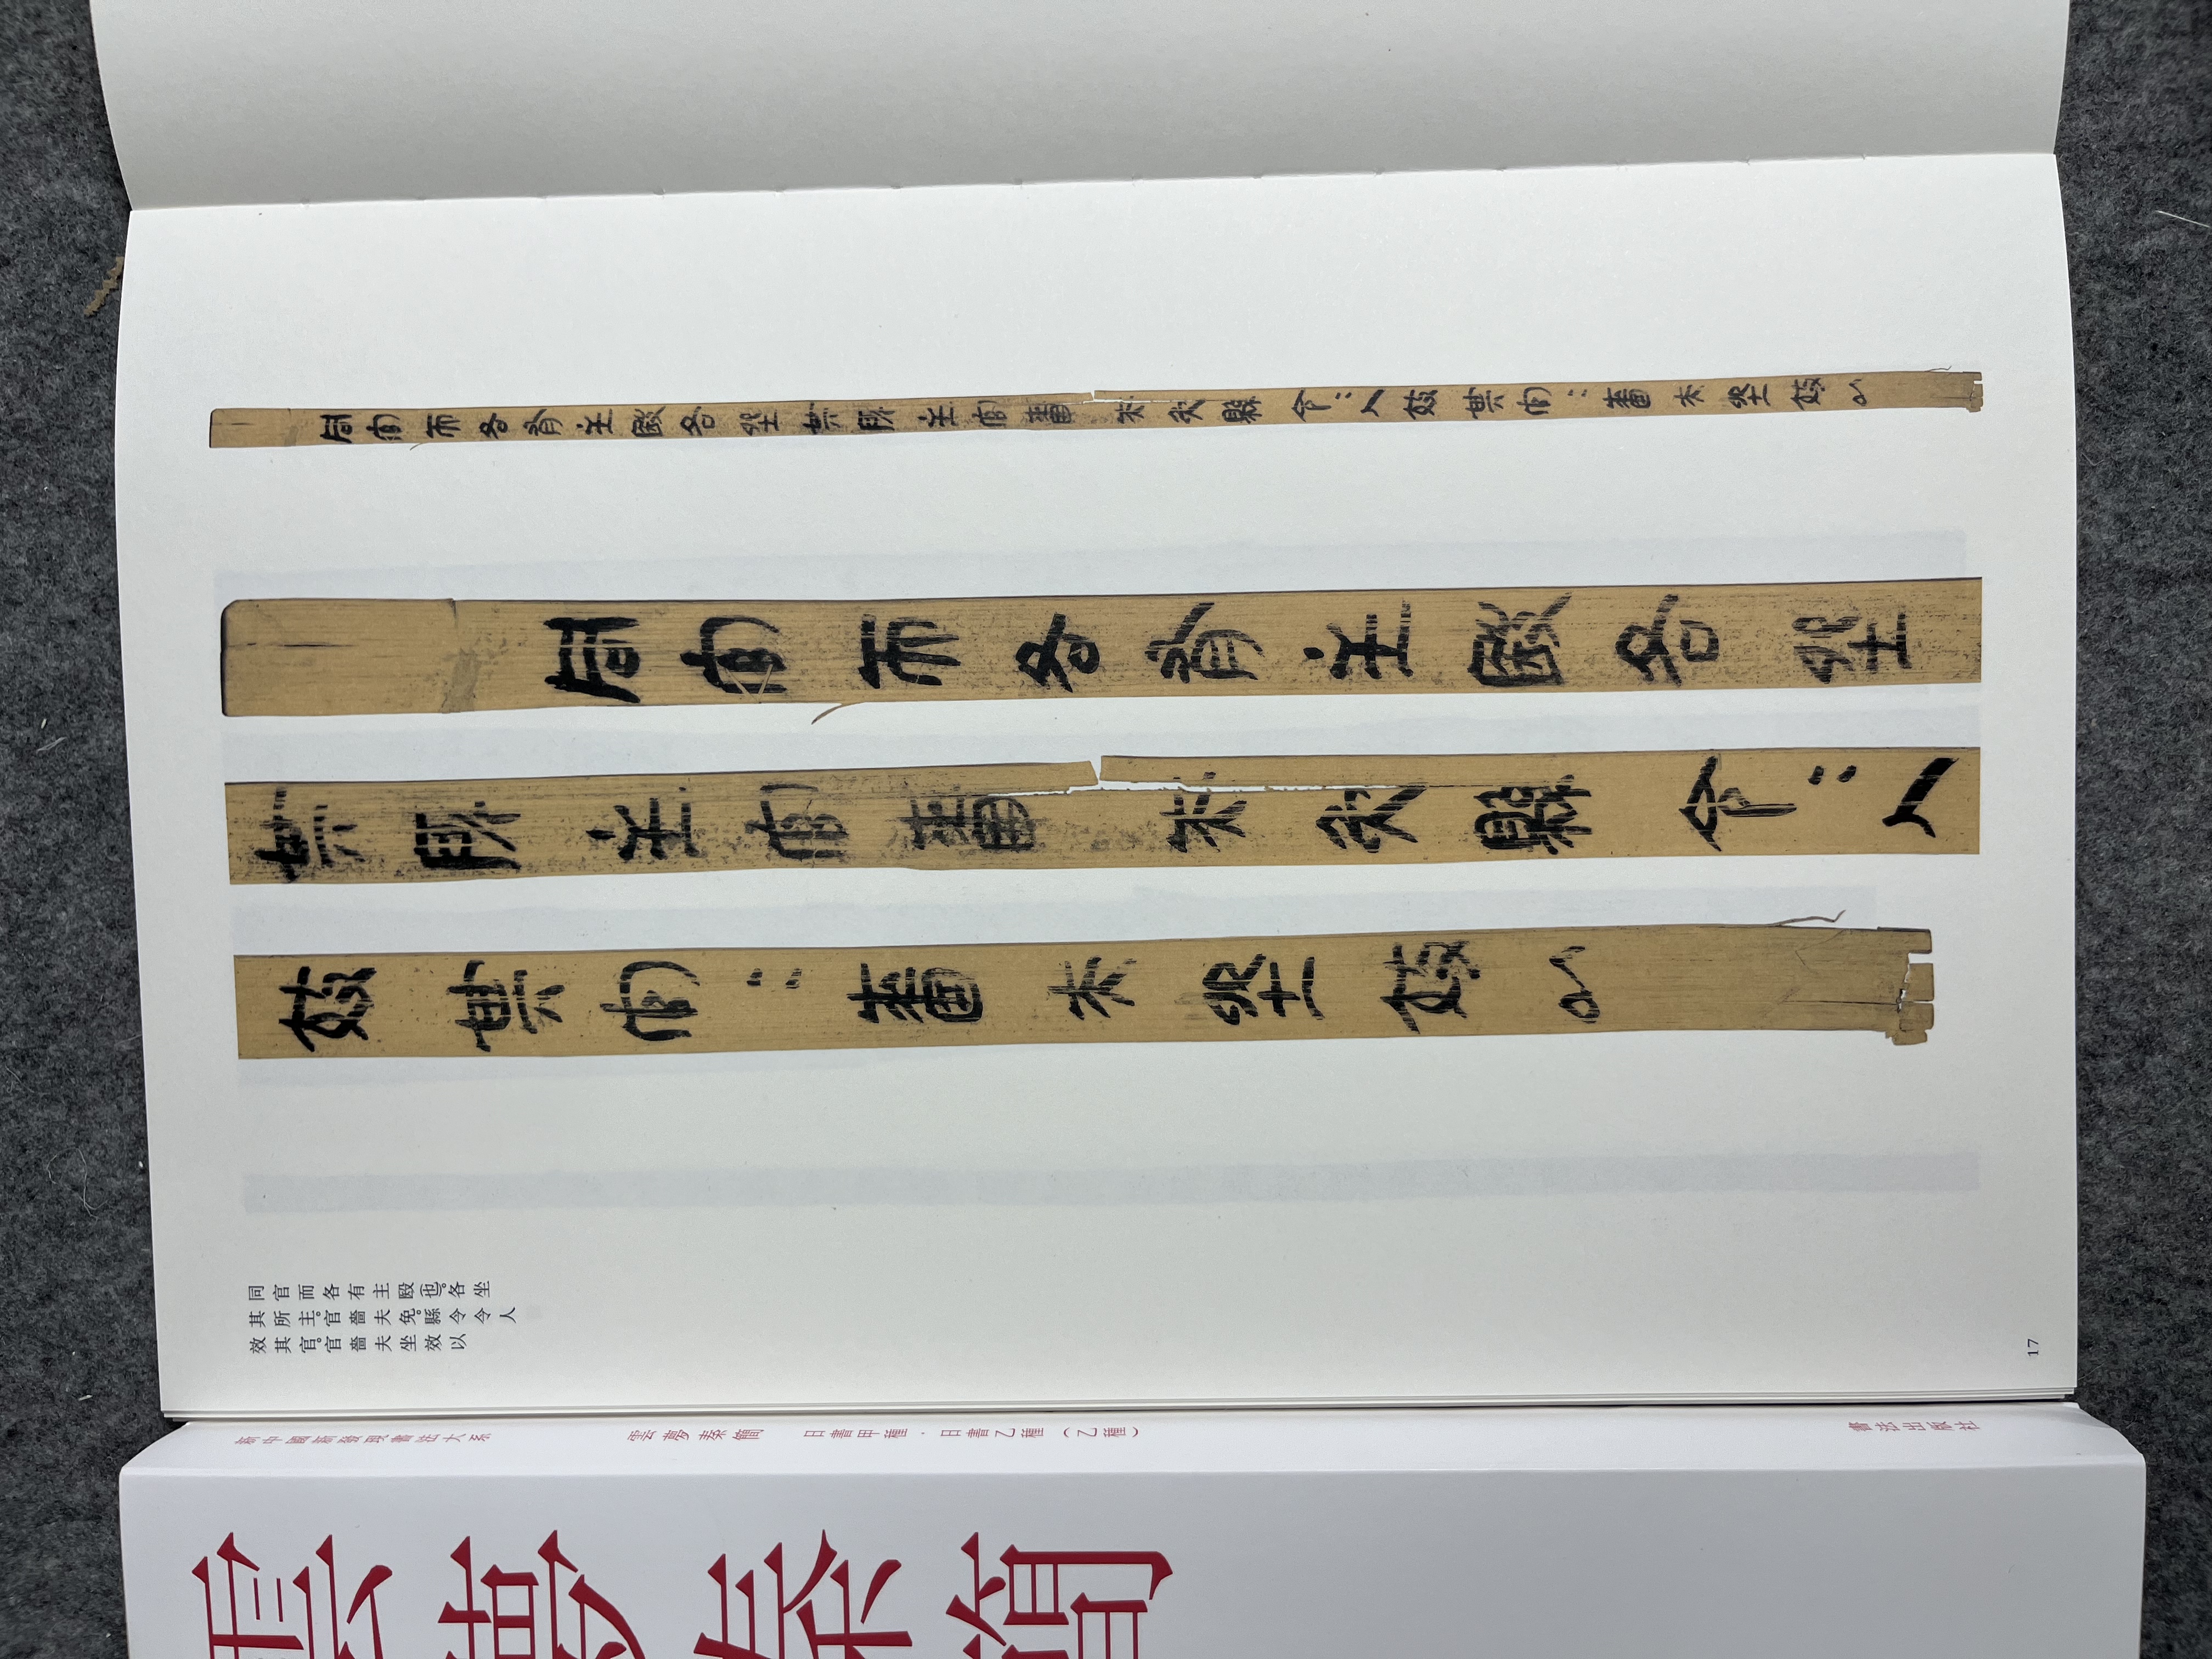 同官而各有主殹各坐其所主官嗇夫免縣令＝人效其官＝嗇夫坐效以
同官而各有主殹各坐
其所主官嗇夫免縣令＝人
效其官＝嗇夫坐效以
同官而各有主殹(也)。各坐
其所主。官嗇夫免。縣令令人
效其官。官嗇夫坐效以
17
雲夢秦簡 日書甲種·日書乙種（乙種）
書法出版社
雲夢秦簡